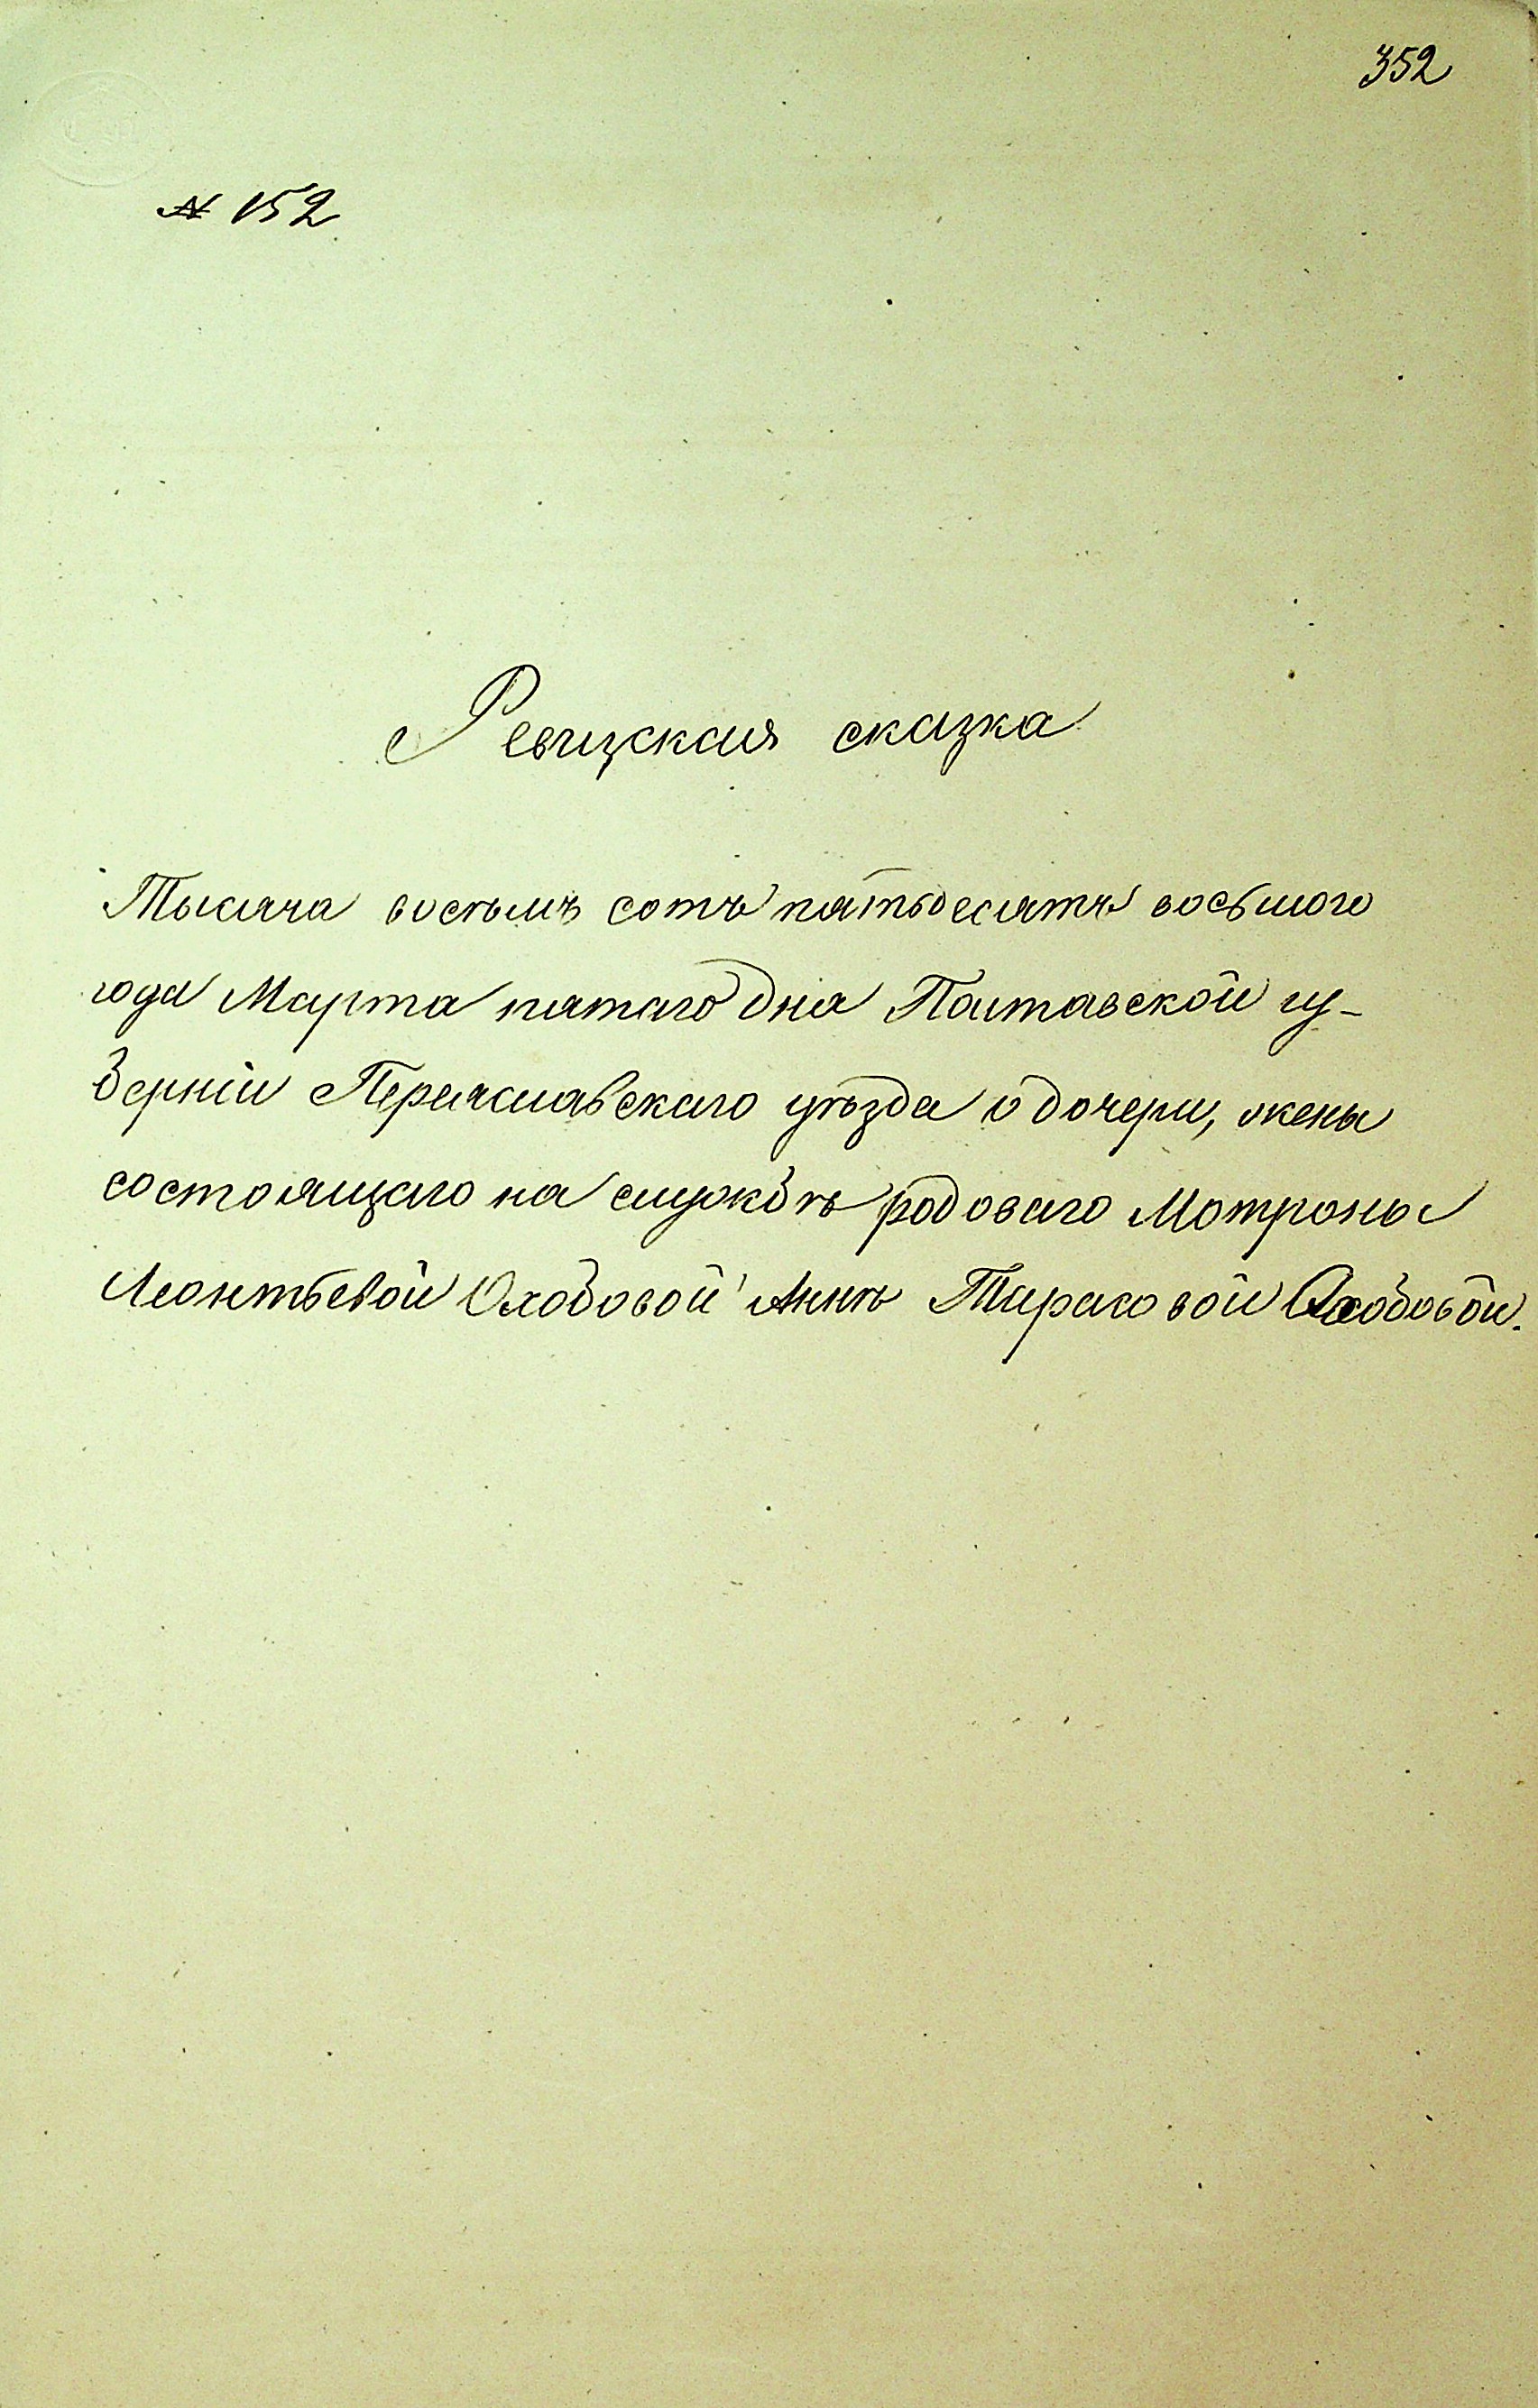 352
№ 152
Ревизская сказка
Тысяча восѣмъ сотъ пятьдесятъ восьмого
года Марта пятаго дня Полтавской гу-
берніи Переяславскаго уѣзда о дочери, жены
состоящаго на службѣ рядоваго Мотроны
Леонтьевой Охобовой Аннѣ Тарасовой Охобовой.